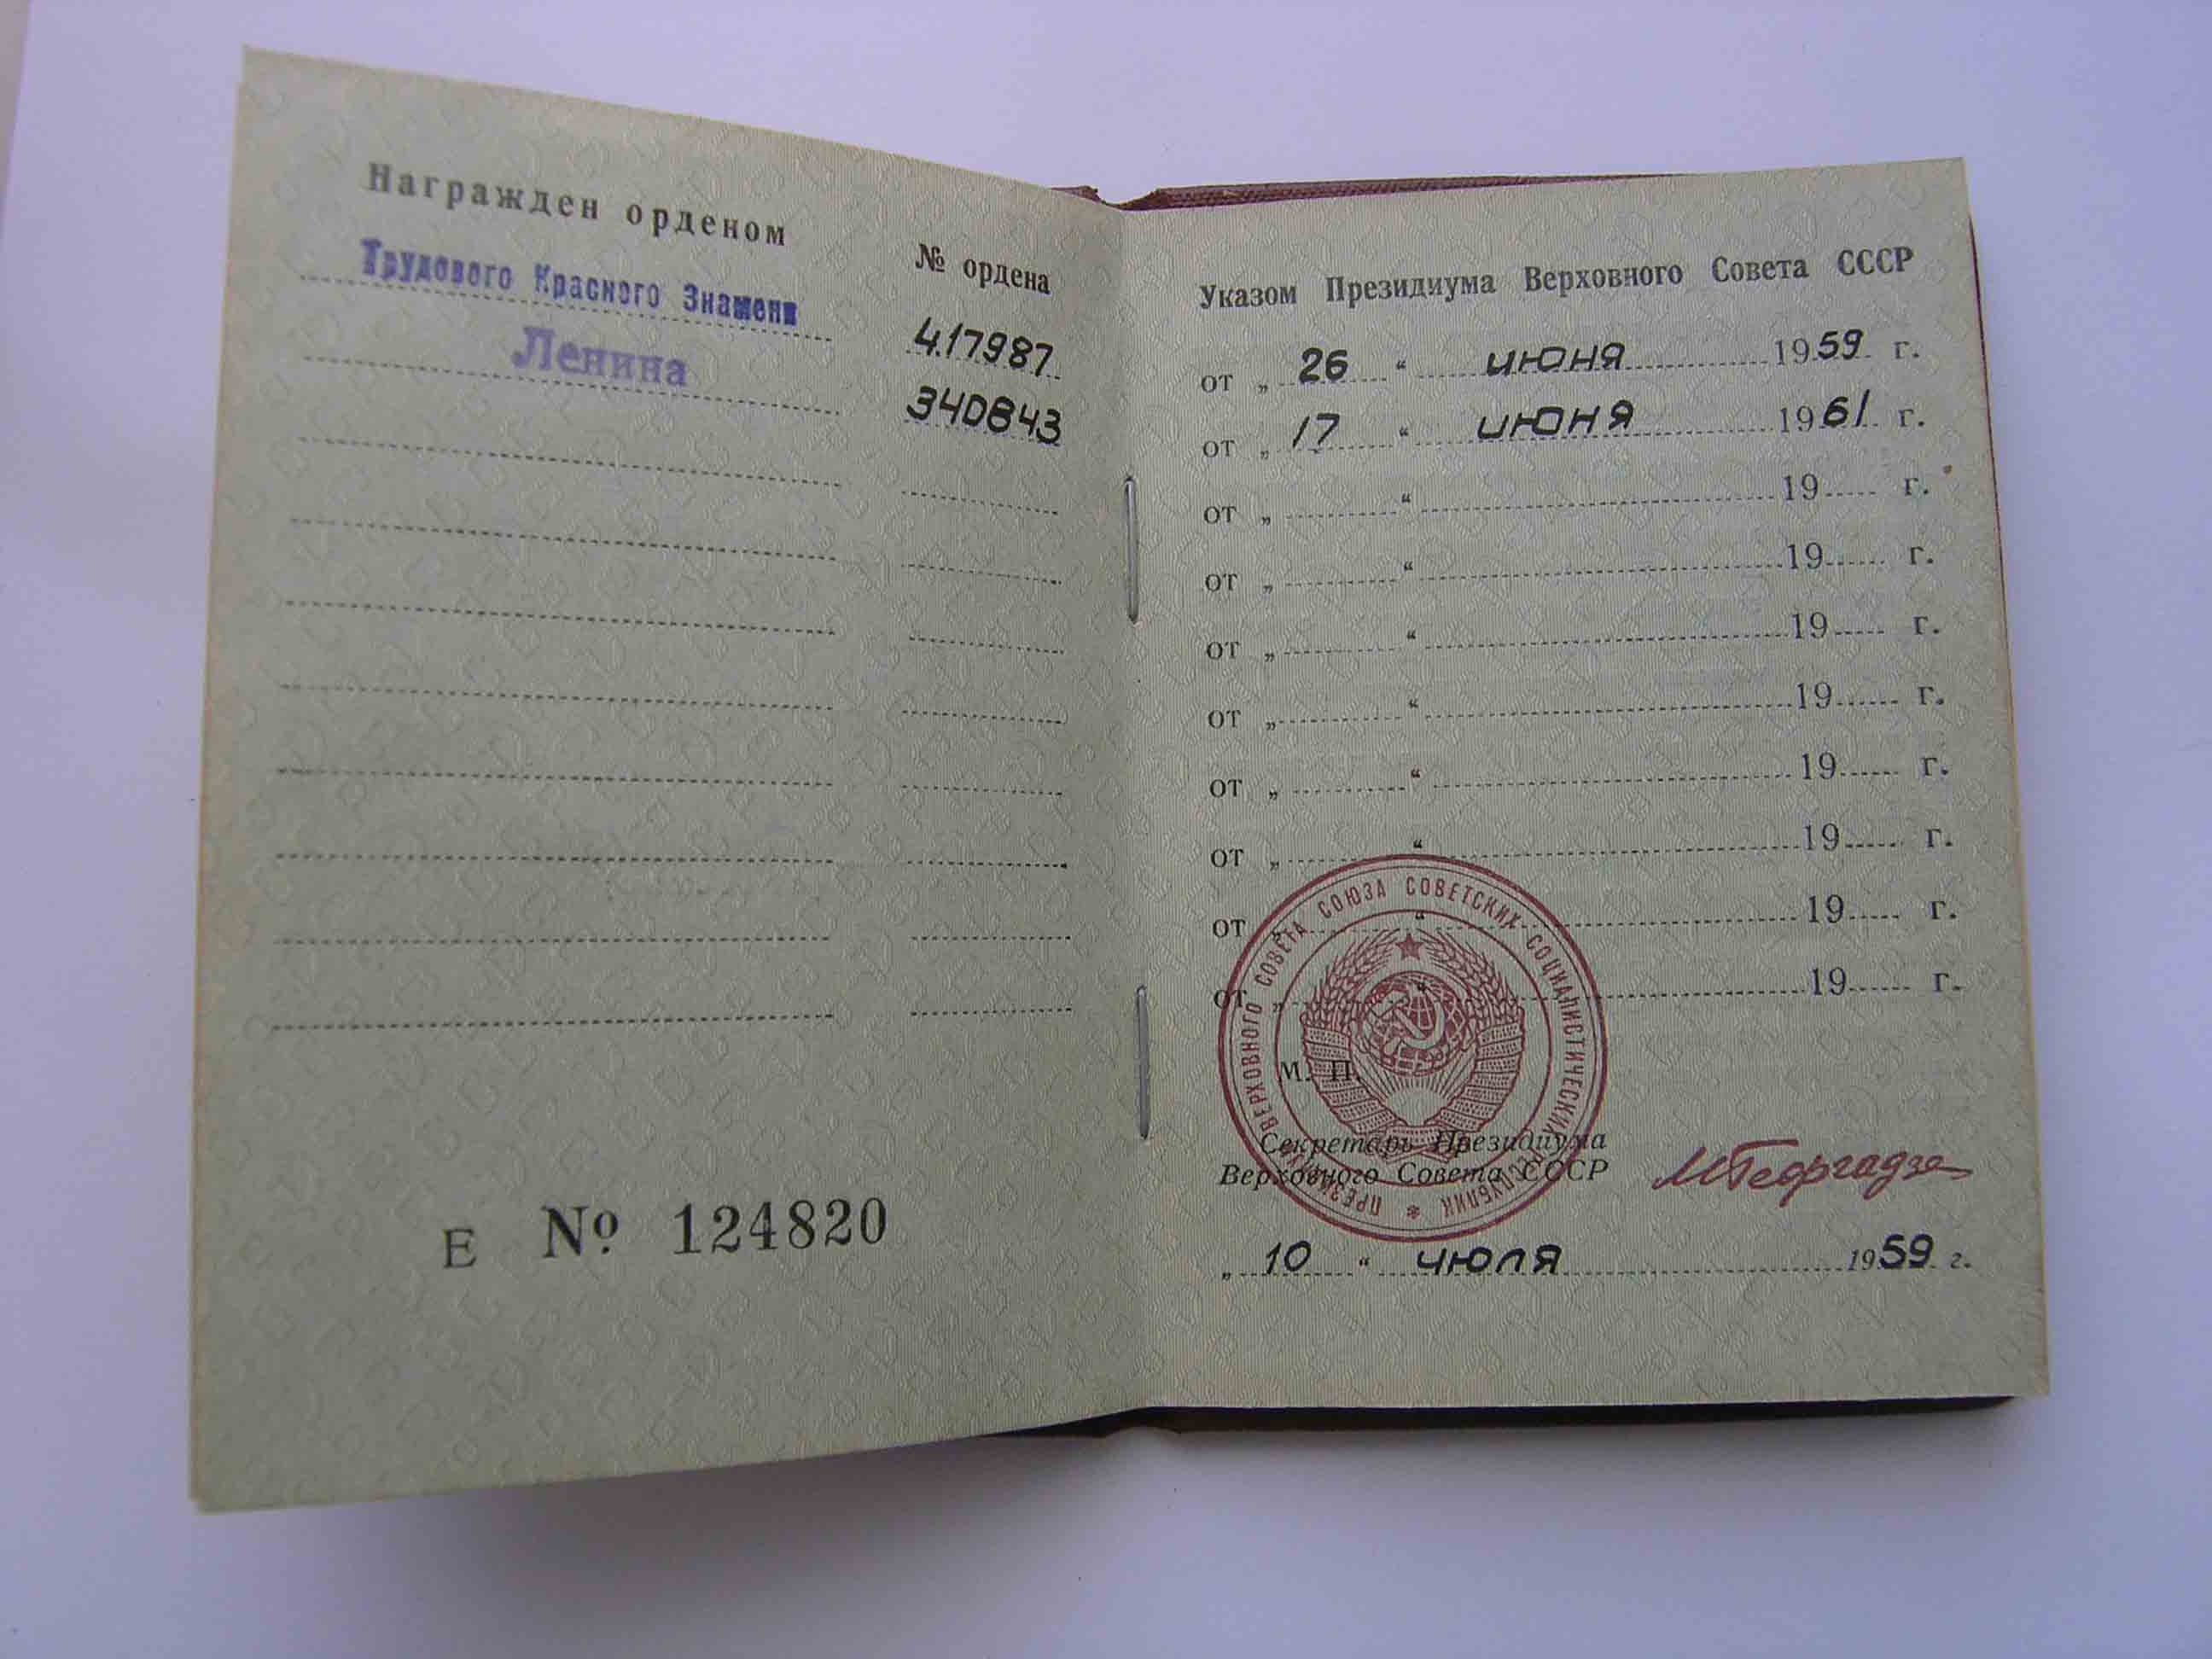 Награжден орденом
№ ордена
Трудового Красного Знамени
417987
Ленина
340843
Е № 124820
Указом Президиума Верховного Совета СССР
от „ 26 “ июня 1959 г.
от „ 17 “ июня 1961 г.
от „ “ 19 г.
от „ “ 19 г.
от „ “ 19 г.
от „ “ 19 г.
от „ “ 19 г.
от „ “ 19 г.
от „ “ 19 г.
от „ “ 19 г.
ПРЕЗИДИУМ ВЕРХОВНОГО СОВЕТА СОЮЗА СОВЕТСКИХ СОЦИАЛИСТИЧЕСКИХ РЕСПУБЛИК
М. П.
Секретарь Президиума
Верховного Совета СССР
М Георгадзе
„ 10 “ июля 1959 г.